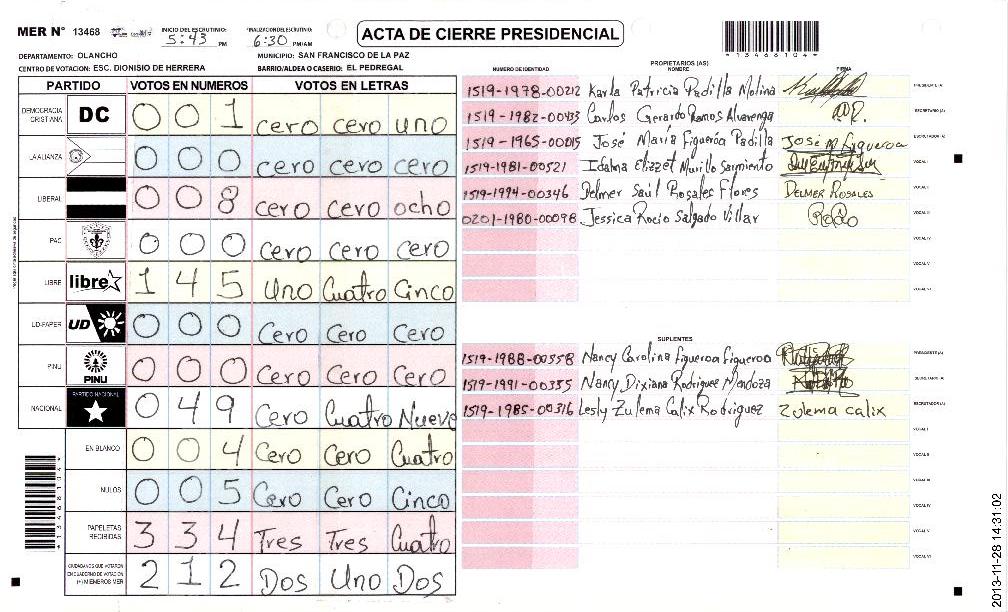 MER N° 13468 INICIO DEL ESCRUTINIO: 5:43 PM FINALIZACION ESCRUTINIO: 6:30 PM/AM ACTA DE CIERRE PRESIDENCIAL
*13468104*
DEPARTAMENTO: OLANCHO MUNICIPIO: SAN FRANCISCO DE LA PAZ
CENTRO DE VOTACION: ESC. DIONISIO DE HERRERA BARRIO/ALDEA O CASERIO: EL PEDREGAL
PARTIDO VOTOS EN NUMEROS VOTOS EN LETRAS
DEMOCRACIA CRISTIANA DC 0 0 1 cero cero uno
LA ALIANZA 0 0 0 cero cero cero
LIBERAL 0 0 8 cero cero ocho
PAC 0 0 0 cero cero cero
LIBRE libre 1 4 5 Uno Cuatro Cinco
UD-FAPER UD 0 0 0 Cero Cero Cero
PINU PINU 0 0 0 Cero Cero Cero
NACIONAL PARTIDO NACIONAL 0 4 9 Cero Cuatro Nueve
EN BLANCO 0 0 4 Cero Cero Cuatro
NULOS 0 0 5 Cero Cero Cinco
PAPELETAS RECIBIDAS 3 3 4 Tres Tres Cuatro
CIUDADANOS QUE VOTARON EN CUADERNO DE VOTACION (+) MIEMBROS MER 2 1 2 Dos Uno Dos
*13468104*
PROPIETARIOS (AS)
NUMERO DE IDENTIDAD NOMBRE FIRMA
1519-1978-00212 Karla Patricia Padilla Molina PRESIDENTE (A)
1519-1982-00433 Carlos Gerardo Ramos Alvarenga SECRETARIO (A)
1519-1965-00015 José María Figueroa Padilla José M Figueroa ESCRUTADOR (A)
1519-1981-00521 Idalma Elizzet Murillo Sarmiento VOCAL I
1519-1994-00346 Delmer Saúl Rosales Flores DELMER ROSALES VOCAL II
0201-1980-00098 Jessica Rocio Salgado Villar VOCAL III
VOCAL IV
VOCAL V
VOCAL VI
SUPLENTES
1519-1988-00558 Nancy Carolina Figueroa Figueroa PRESIDENTE (A)
1519-1991-00355 Nancy Dixiana Rodriguez Mendoza SECRETARIO (A)
1519-1985-00316 Lesly Zulema Calix Rodriguez Zulema calix ESCRUTADOR (A)
VOCAL I
VOCAL II
VOCAL III
VOCAL IV
VOCAL V
VOCAL VI
2013-11-28 14:31:02